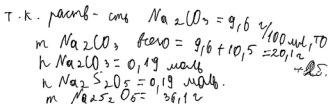 т.к. раств-сть Na2CO3 = 9,6 г/100 мл, то
m Na2CO3 всего = 9,6 + 10,5 = 20,1 г
n Na2CO3 = 0,19 моль
n Na2S2O5 = 0,19 моль.
m Na2S2O5 = 36,1 г
+2б.